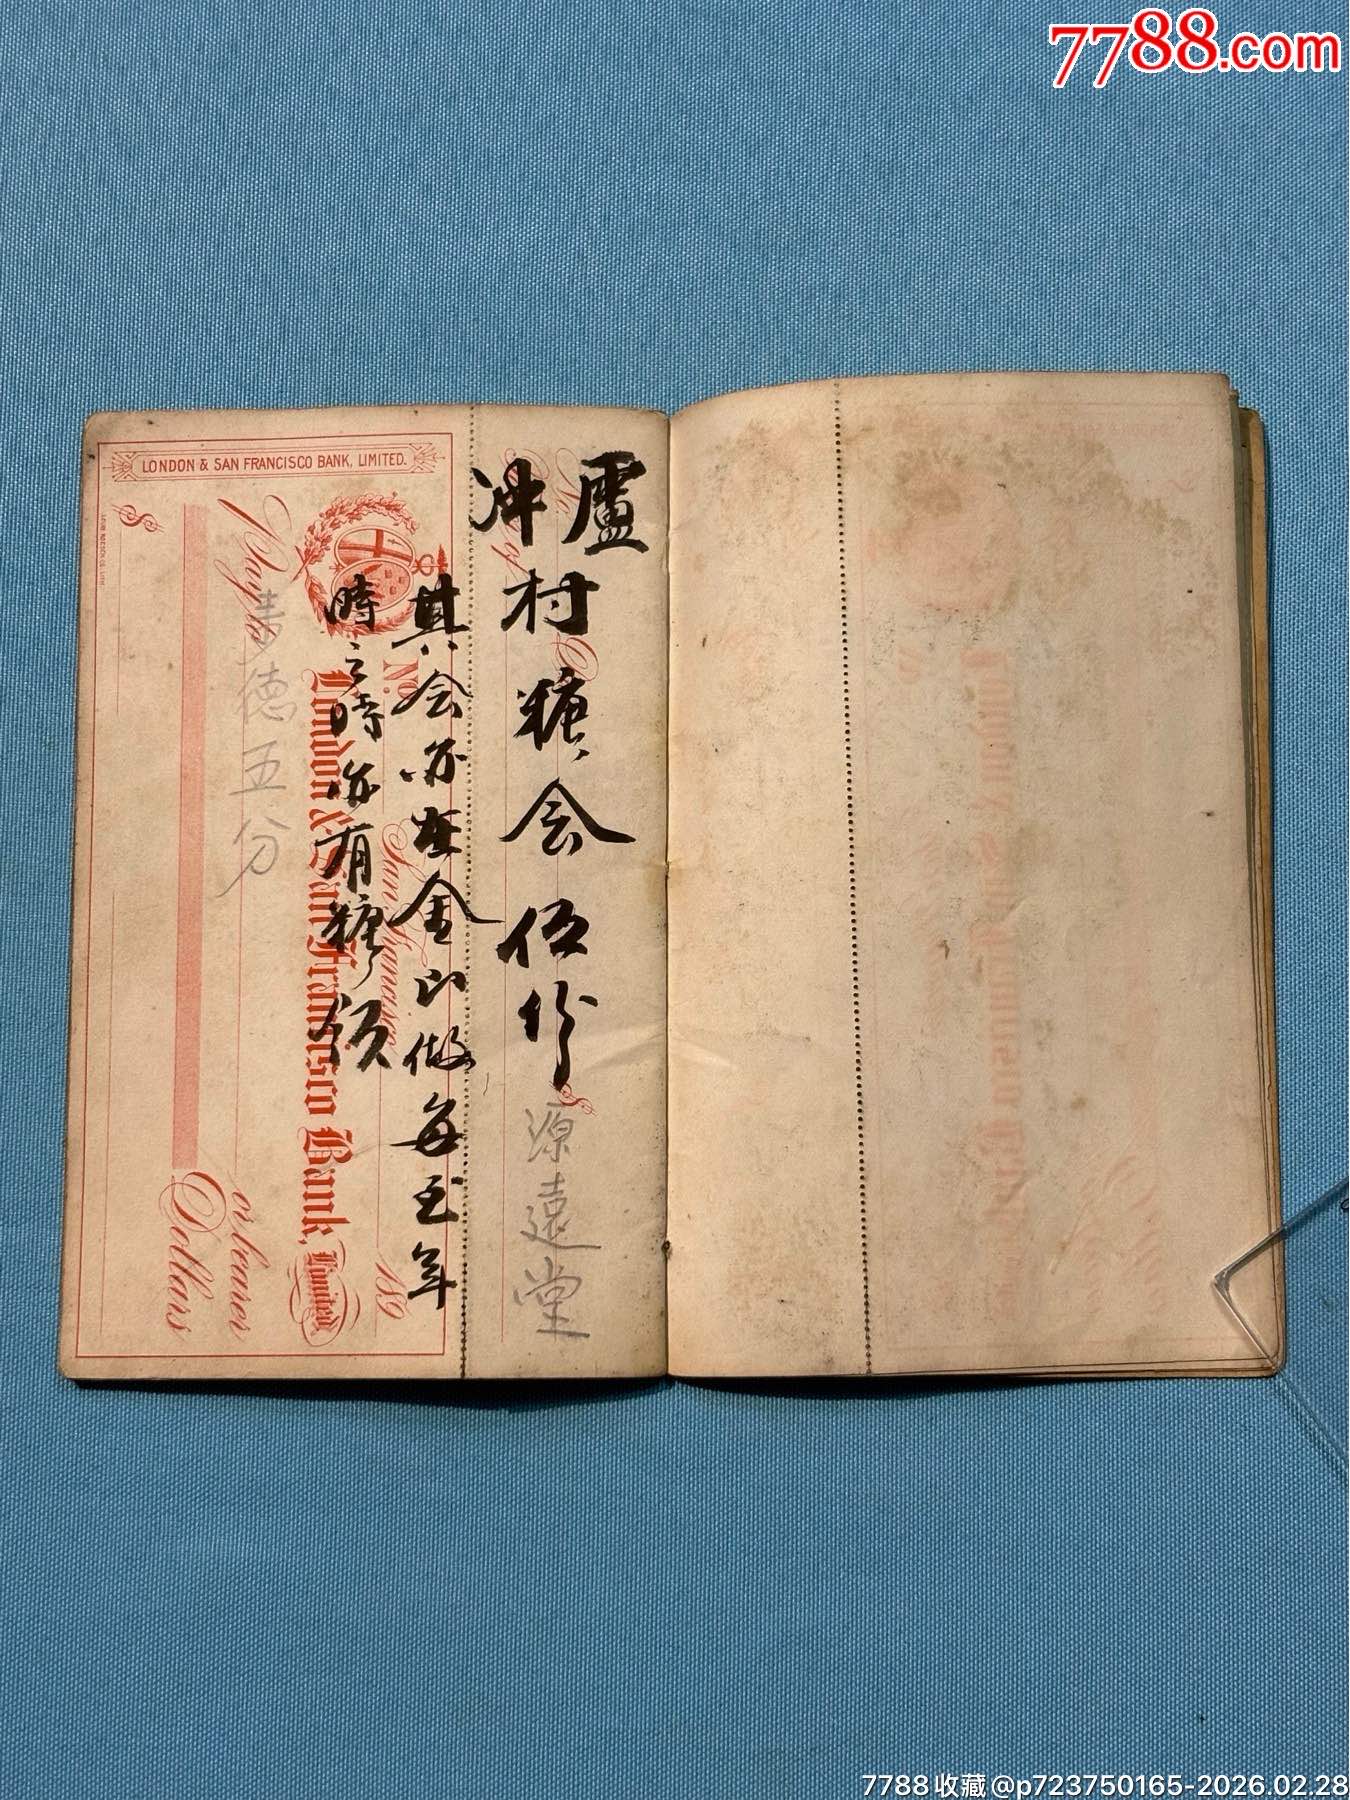 7788.com
盧冲村糖会伍份
源遠堂
其会亦在金山做每至年
時之時亦有糖領
德五分
LONDON & SAN FRANCISCO BANK, LIMITED.
No.
San Francisco
189
London & San Francisco Bank, Limited
Pay to
or bearer
$
Dollars
7788收藏@p723750165-2026.02.28